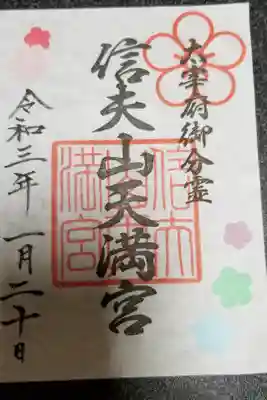 太宰府御分霊
信夫山天満宮
令和三年一月二十日